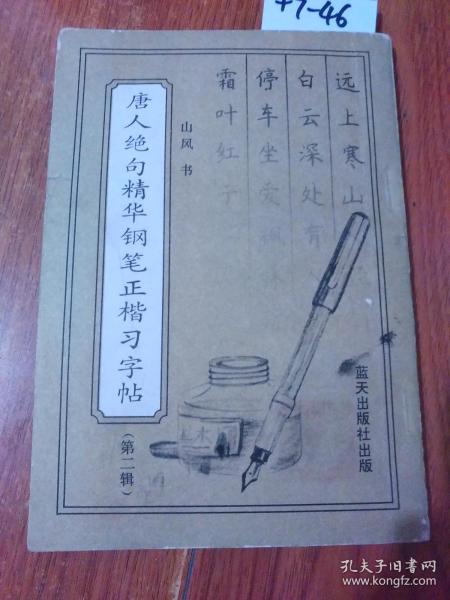 47-46
远上寒山
白云深处有
停车坐爱枫林
霜叶红于
山风 书
唐人绝句精华钢笔正楷习字帖
（第二辑）
蓝天出版社出版
孔夫子旧书网
www.kongfz.com